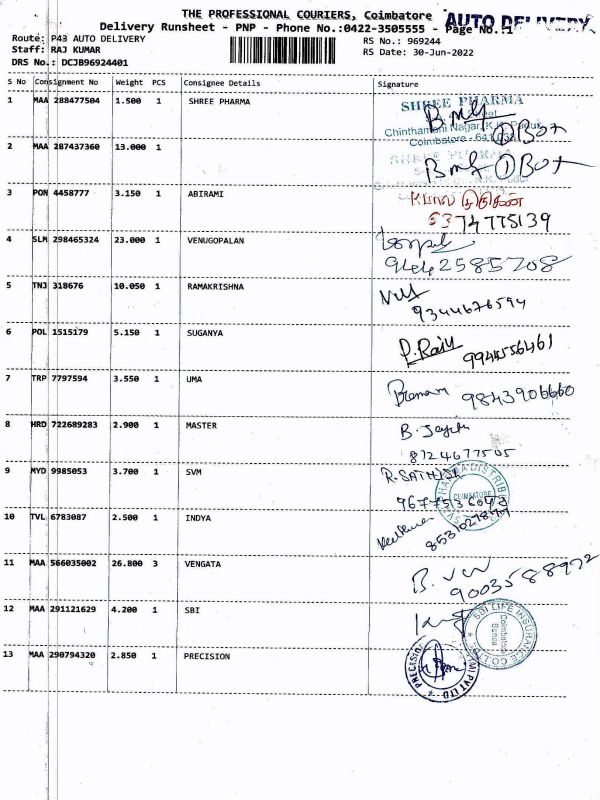 THE PROFESSIONAL COURIERS, Coimbatore
AUTO DELIVERY
Delivery Runsheet - PNP - Phone No.:0422-3505555 - Page No.:1
Route: P43 AUTO DELIVERY
RS No.: 969244
Staff: RAJ KUMAR
RS Date: 30-Jun-2022
DRS No.: DCJB96924401
S No Consignment No Weight PCS Consignee Details Signature
1 MAA 288477504 1.500 1 SHREE PHARMA
SHREE PHARMA
Chinthamani Nagar, K.K. Pudur
Coimbatore - 641 038
① Box
2 MAA 287437360 13.000 1
SHREE PHARMA
① Box
3 PON 4458777 3.150 1 ABIRAMI
6374775139
4 SLM 298465324 23.000 1 VENUGOPALAN
9442585708
5 TNJ 318676 10.050 1 RAMAKRISHNA
9344676594
6 POL 1515179 5.150 1 SUGANYA
P. Raju
7 TRP 7797594 3.550 1 UMA
9843906660
8 HRD 722689283 2.900 1 MASTER
8124677505
9 MYD 9985053 3.700 1 SVM
COIMBATORE
10 TVL 6783087 2.500 1 INDYA
11 MAA 566035002 26.800 3 VENGATA
9003588972
12 MAA 291121629 4.200 1 SBI
SBI LIFE INSURANCE CO LTD
Coimbatore
13 MAA 290794320 2.850 1 PRECISION